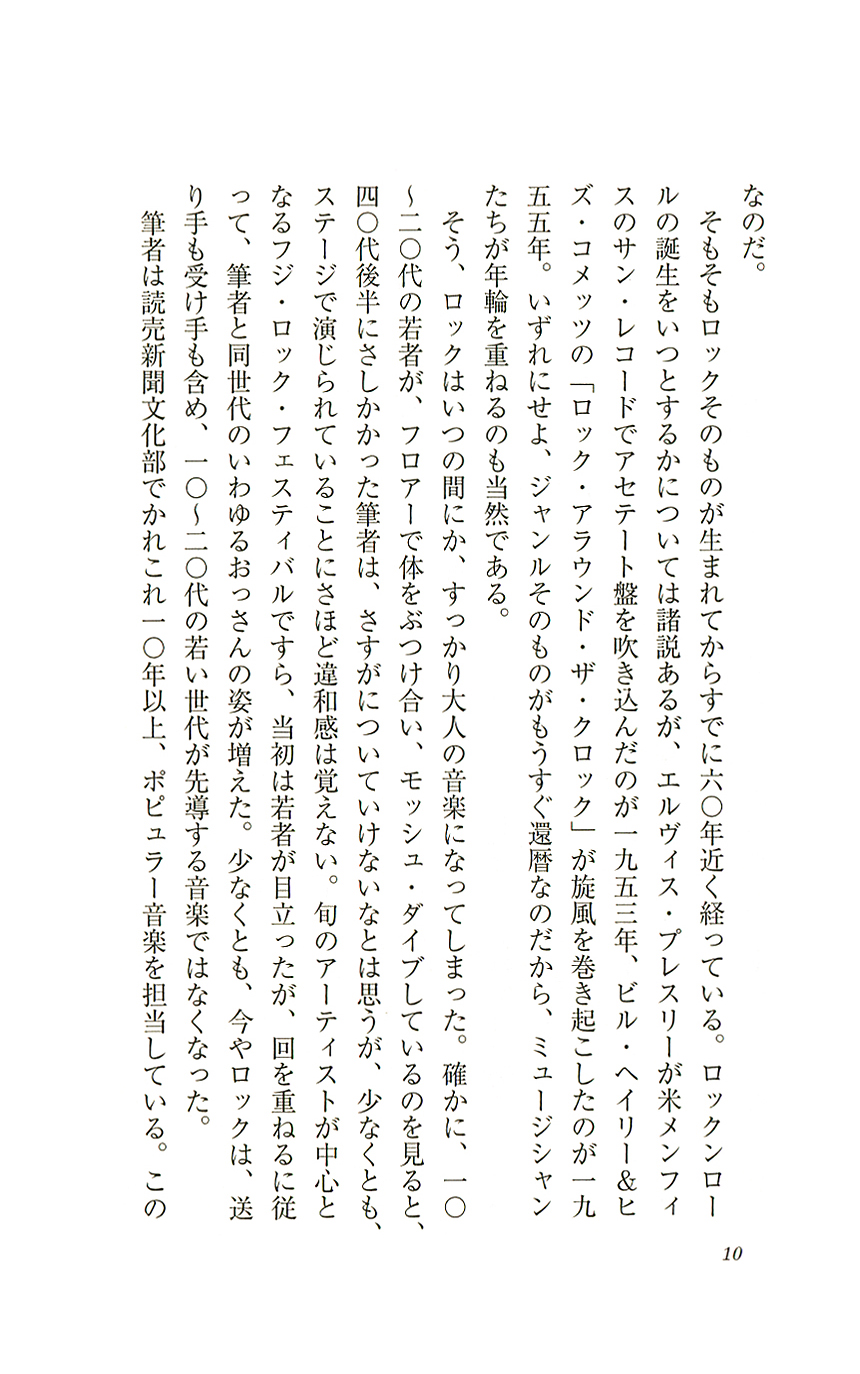 なのだ。
　そもそもロックそのものが生まれてからすでに六〇年近く経っている。ロックンロー
ルの誕生をいつとするかについては諸説あるが、エルヴィス・プレスリーが米メンフィ
スのサン・レコードでアセテート盤を吹き込んだのが一九五三年、ビル・ヘイリー＆ヒ
ズ・コメッツの「ロック・アラウンド・ザ・クロック」が旋風を巻き起こしたのが一九
五五年。いずれにせよ、ジャンルそのものがもうすぐ還暦なのだから、ミュージシャン
たちが年輪を重ねるのも当然である。
　そう、ロックはいつの間にか、すっかり大人の音楽になってしまった。確かに、一〇
〜二〇代の若者が、フロアーで体をぶつけ合い、モッシュ・ダイブしているのを見ると、
四〇代後半にさしかかった筆者は、さすがについていけないなとは思うが、少なくとも、
ステージで演じられていることにさほど違和感は覚えない。旬のアーティストが中心と
なるフジ・ロック・フェスティバルですら、当初は若者が目立ったが、回を重ねるに従
って、筆者と同世代のいわゆるおっさんの姿が増えた。少なくとも、今やロックは、送
り手も受け手も含め、一〇〜二〇代の若い世代が先導する音楽ではなくなった。
　筆者は読売新聞文化部でかれこれ一〇年以上、ポピュラー音楽を担当している。この
10